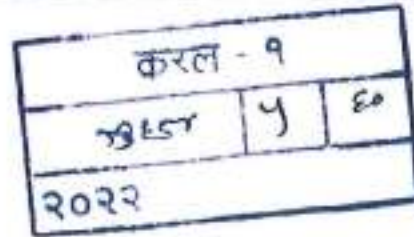 करल - १
५ ६०
२०२२